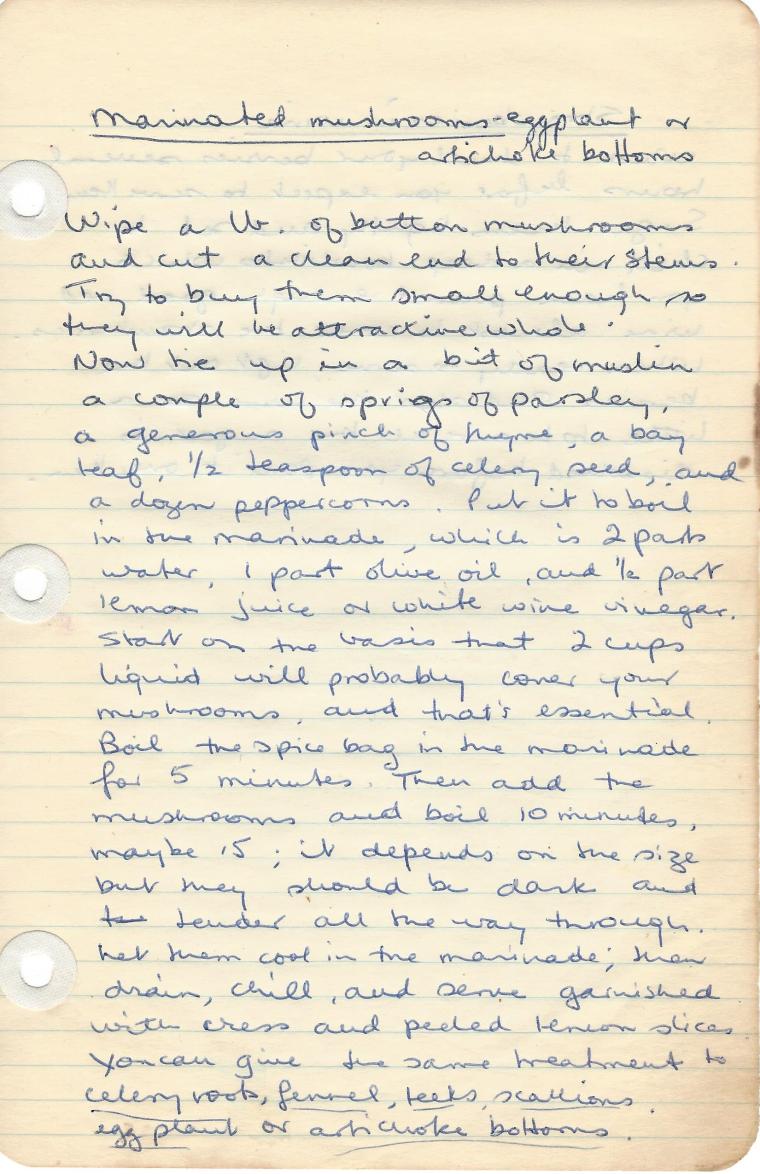 Marinated mushrooms - eggplant or
artichoke bottoms
Wipe a lb. of button mushrooms
and cut a clean end to their stems.
Try to buy them small enough so
they will be attractive whole.
Now tie up in a bit of muslin
a couple of sprigs of parsley,
a generous pinch of thyme, a bay
leaf, 1/2 teaspoon of celery seed, and
a dozen peppercorns. Put it to boil
in the marinade, which is 2 parts
water, 1 part olive oil, and 1/2 part
lemon juice or white wine vinegar.
Start on the basis that 2 cups
liquid will probably cover your
mushrooms, and that's essential.
Boil the spice bag in the marinade
for 5 minutes. Then add the
mushrooms and boil 10 minutes,
maybe 15; it depends on the size
but they should be dark and
tender all the way through.
Let them cool in the marinade; then
drain, chill, and serve garnished
with cress and peeled lemon slices.
You can give the same treatment to
celery root, fennel, leeks, scallions
eggplant or artichoke bottoms.